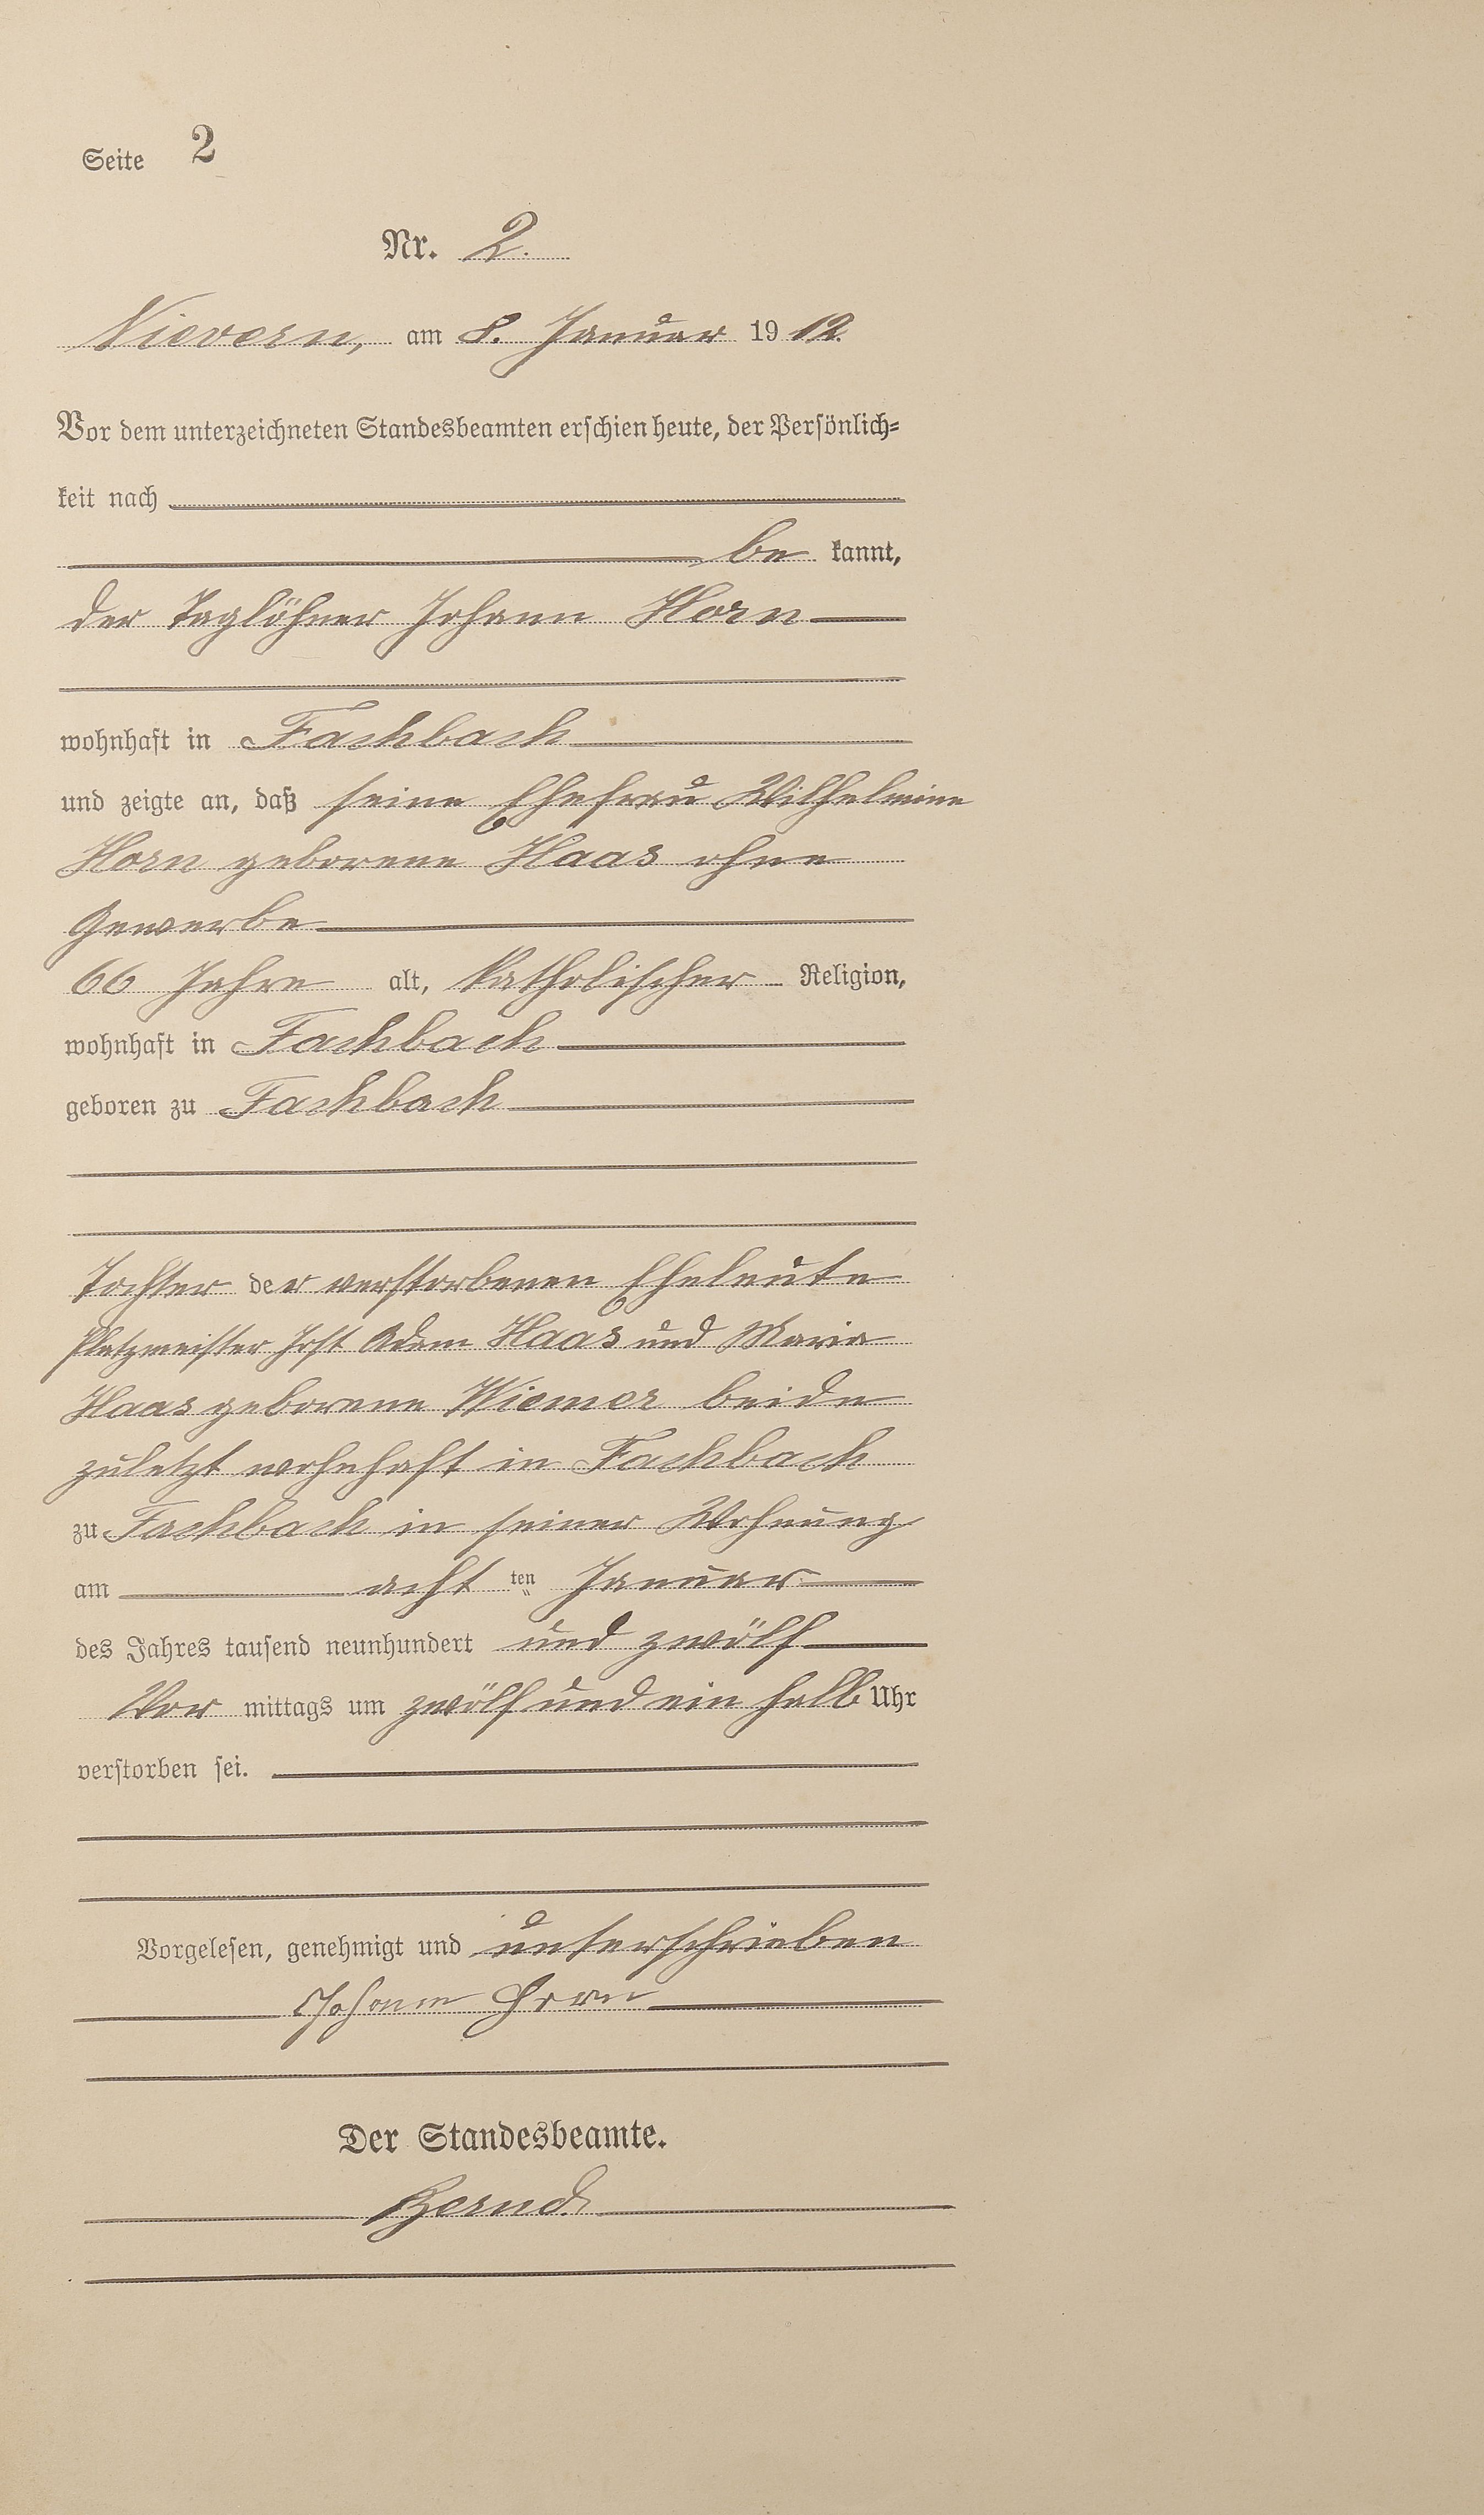 Seite 2
Nr. 2.
Nievern, am 8. Januar 1912.
Vor dem unterzeichneten Standesbeamten erschien heute, der Persönlich=
keit nach
be kannt,
der Taglöhner Johann Horn
wohnhaft in Fachbach
und zeigte an, daß seine Ehefrau Wilhelmine
Horn geborene Haas ohne
Gewerbe
66 Jahre alt, katholischer Religion,
wohnhaft in Fachbach
geboren zu Fachbach
Tochter der verstorbenen Eheleute
Platzmeister Jost Adam Haas und Maria
Haas geborene Wiemer beide
zuletzt wohnhaft in Fachbach
zu Fachbach in seiner Wohnung
am acht ten Januar
des Jahres tausend neunhundert und zwölf
Vor mittags um zwölf und ein halb Uhr
verstorben sei.
Vorgelesen, genehmigt und unterschrieben
Johann Horn
Der Standesbeamte.